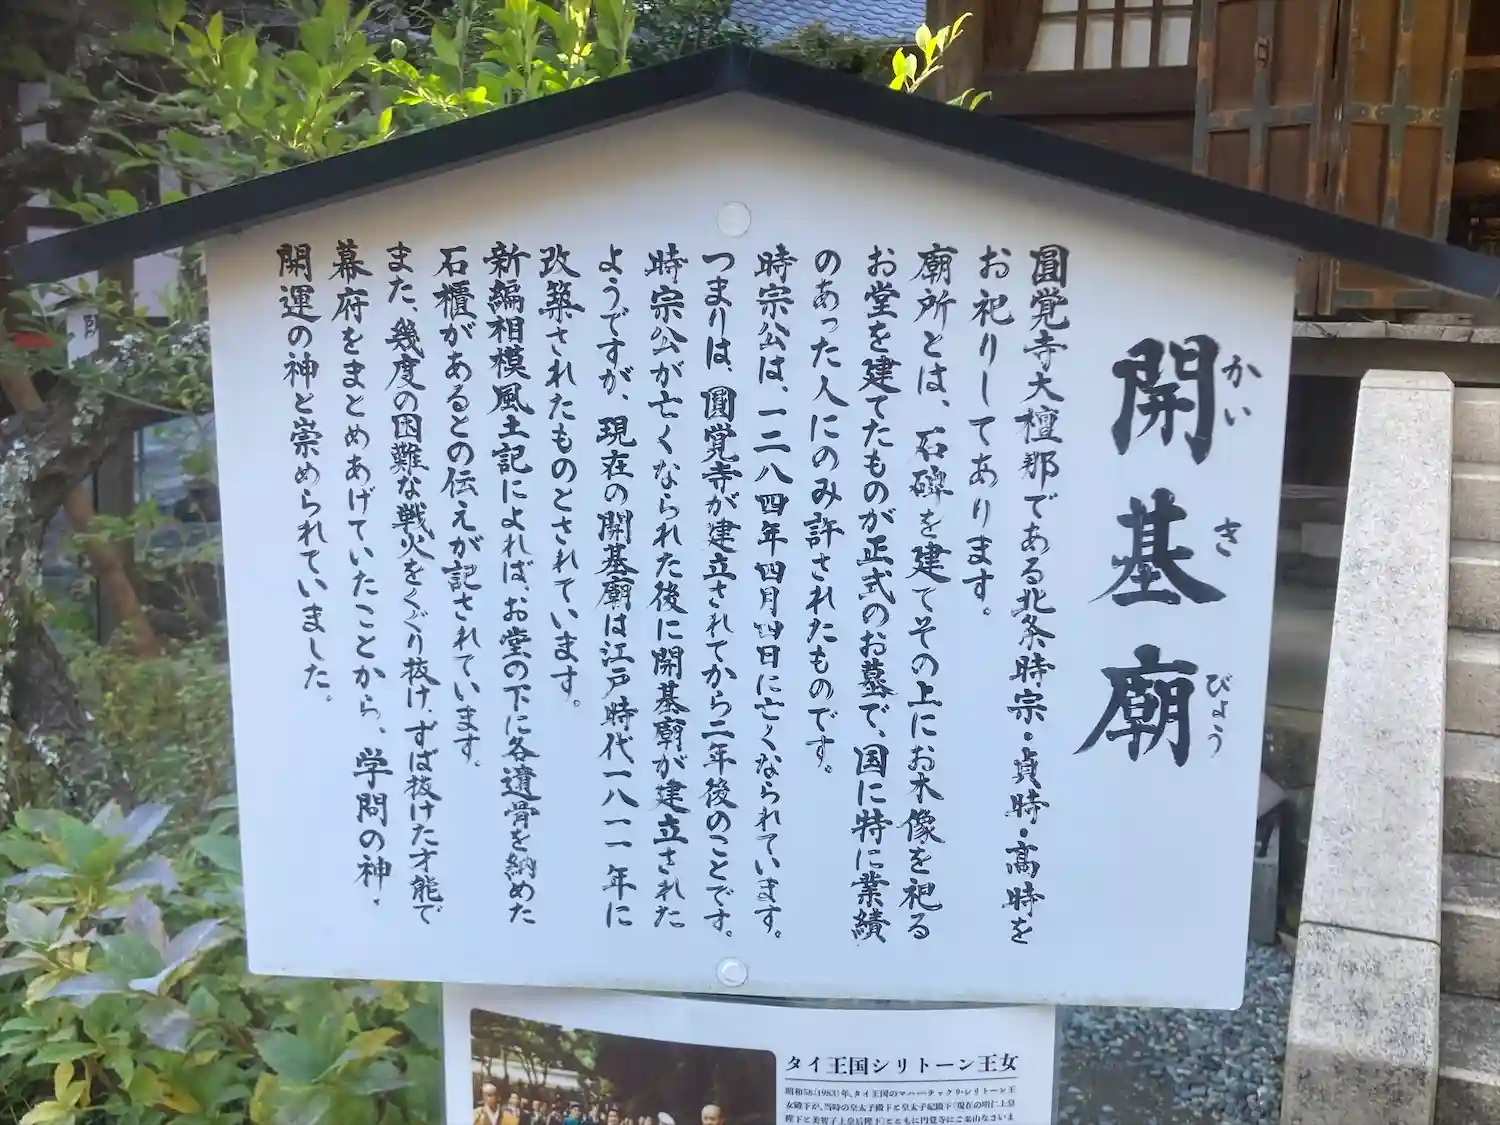 開基廟
かいきびょう
圓覚寺大檀那である北条時宗・貞時・高時を
お祀りしてあります。
廟所とは、石碑を建てその上にお木像を祀る
お堂を建てたものが正式のお墓で、国に特に業績
のあった人にのみ許されたものです。
時宗公は、一二八四年四月四日に亡くなられています。
つまりは、圓覚寺が建立されてから二年後のことです。
時宗公が亡くなられた後に開基廟が建立された
ようですが、現在の開基廟は江戸時代一八一一年に
改築されたものとされています。
新編相模風土記によれば、お堂の下に各遺骨を納めた
石櫃があるとの伝えが記されています。
また、幾度の困難な戦火をくぐり抜け、ずば抜けた才能で
幕府をまとめあげていたことから、学問の神・
開運の神と崇められていました。
タイ王国シリトーン王女
昭和58(1983)年、タイ王国のマハーチャクリ・シリトーン王
女殿下が、当時の皇太子殿下と皇太子妃殿下(現在の明仁上皇
陛下と美智子上皇后陛下)とともに円覚寺にご来山なさいま